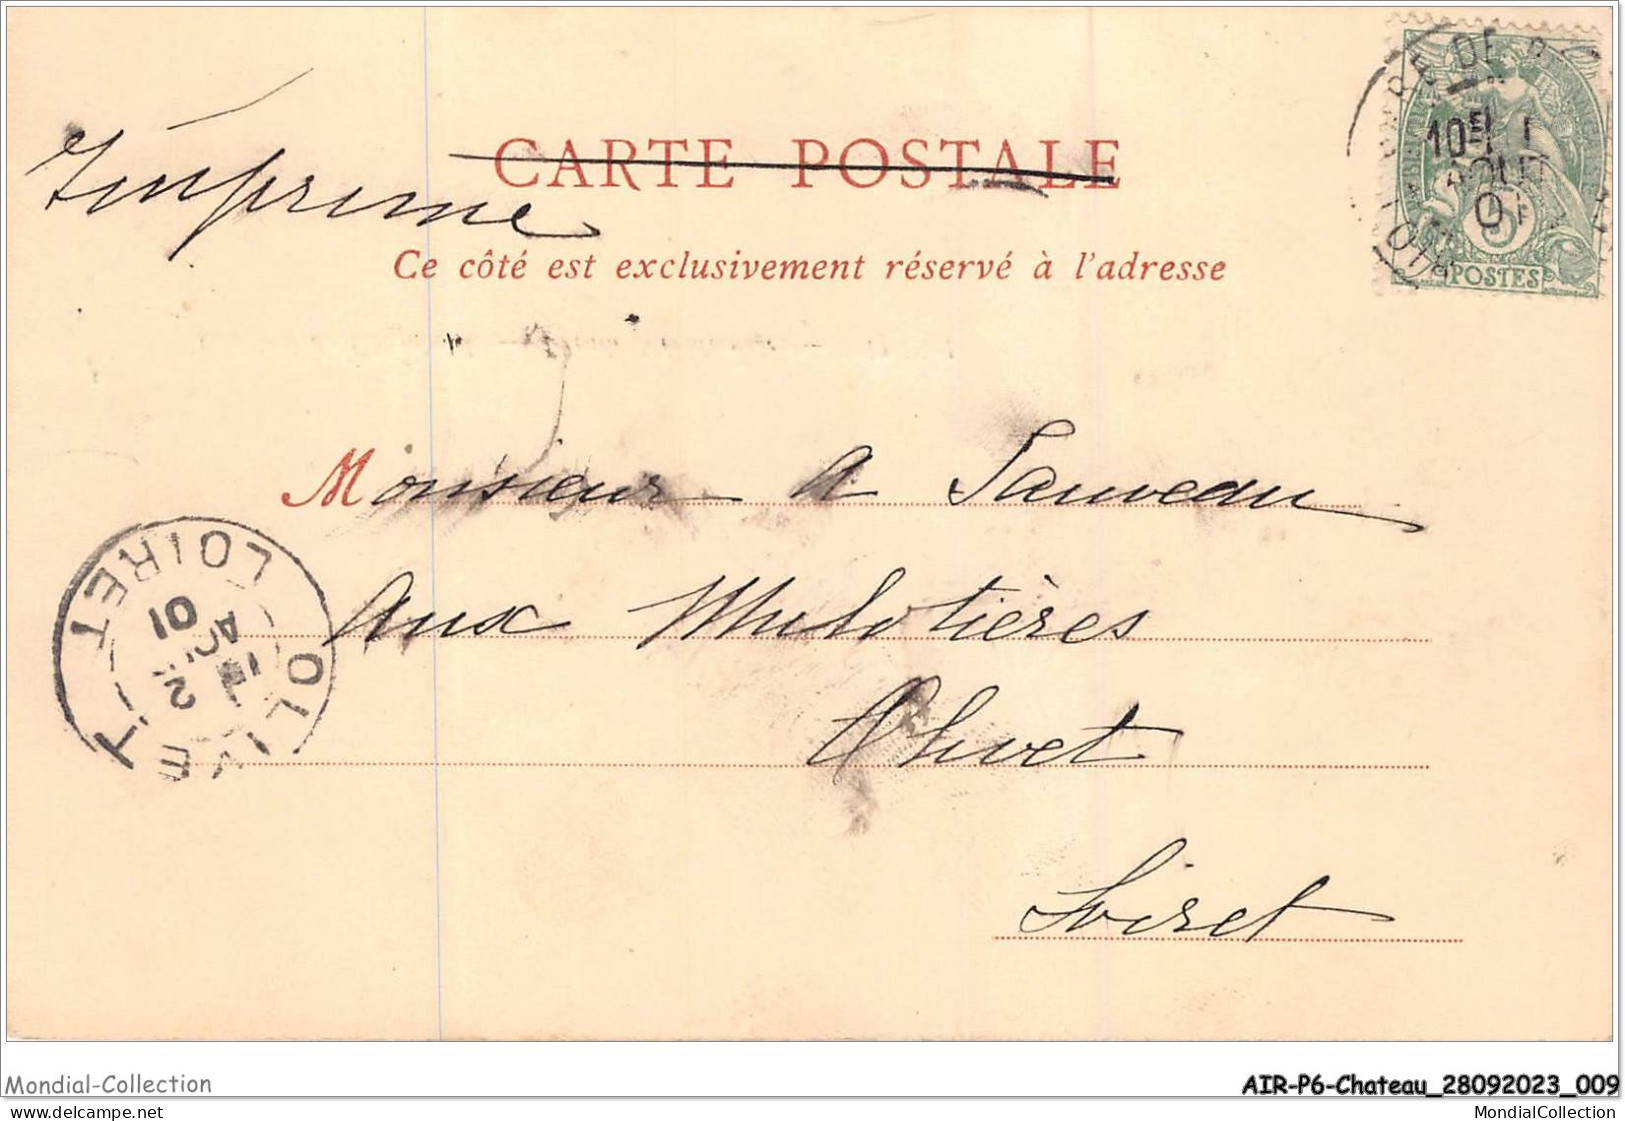 Imprimé
CARTE POSTALE
Ce côté est exclusivement réservé à l'adresse
10E 1
AOUT
01
POSTES
Monsieur A Sauveau
aux Mulotières
Olivet
Loiret
OLIVET
LOIRET
2
AOUT
01
Mondial-Collection
AIR-P6-Chateau_28092023_009
MondialCollection
MondialCollection